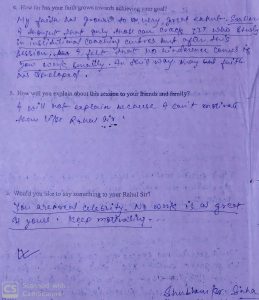 4. How far has your faith grown towards achieving your goal?
My faith has growed to a very great extent. Earlier
I thought that only those can crack IIT who study
in institutional coaching centres but after this
session, I felt that no hinderance comes if
you work smartly. In this way my
has developed.
5. How will you explain about this session to your friends and family?
I will not explain because I can't motivate
them like Rahul Sir.
6. Would you like to say something to your Rahul Sir?
You are real celebrity. No work is as great
as yours. Keep motivating...
Shubham Kr. Sinha
CS Scanned with
CamScanner